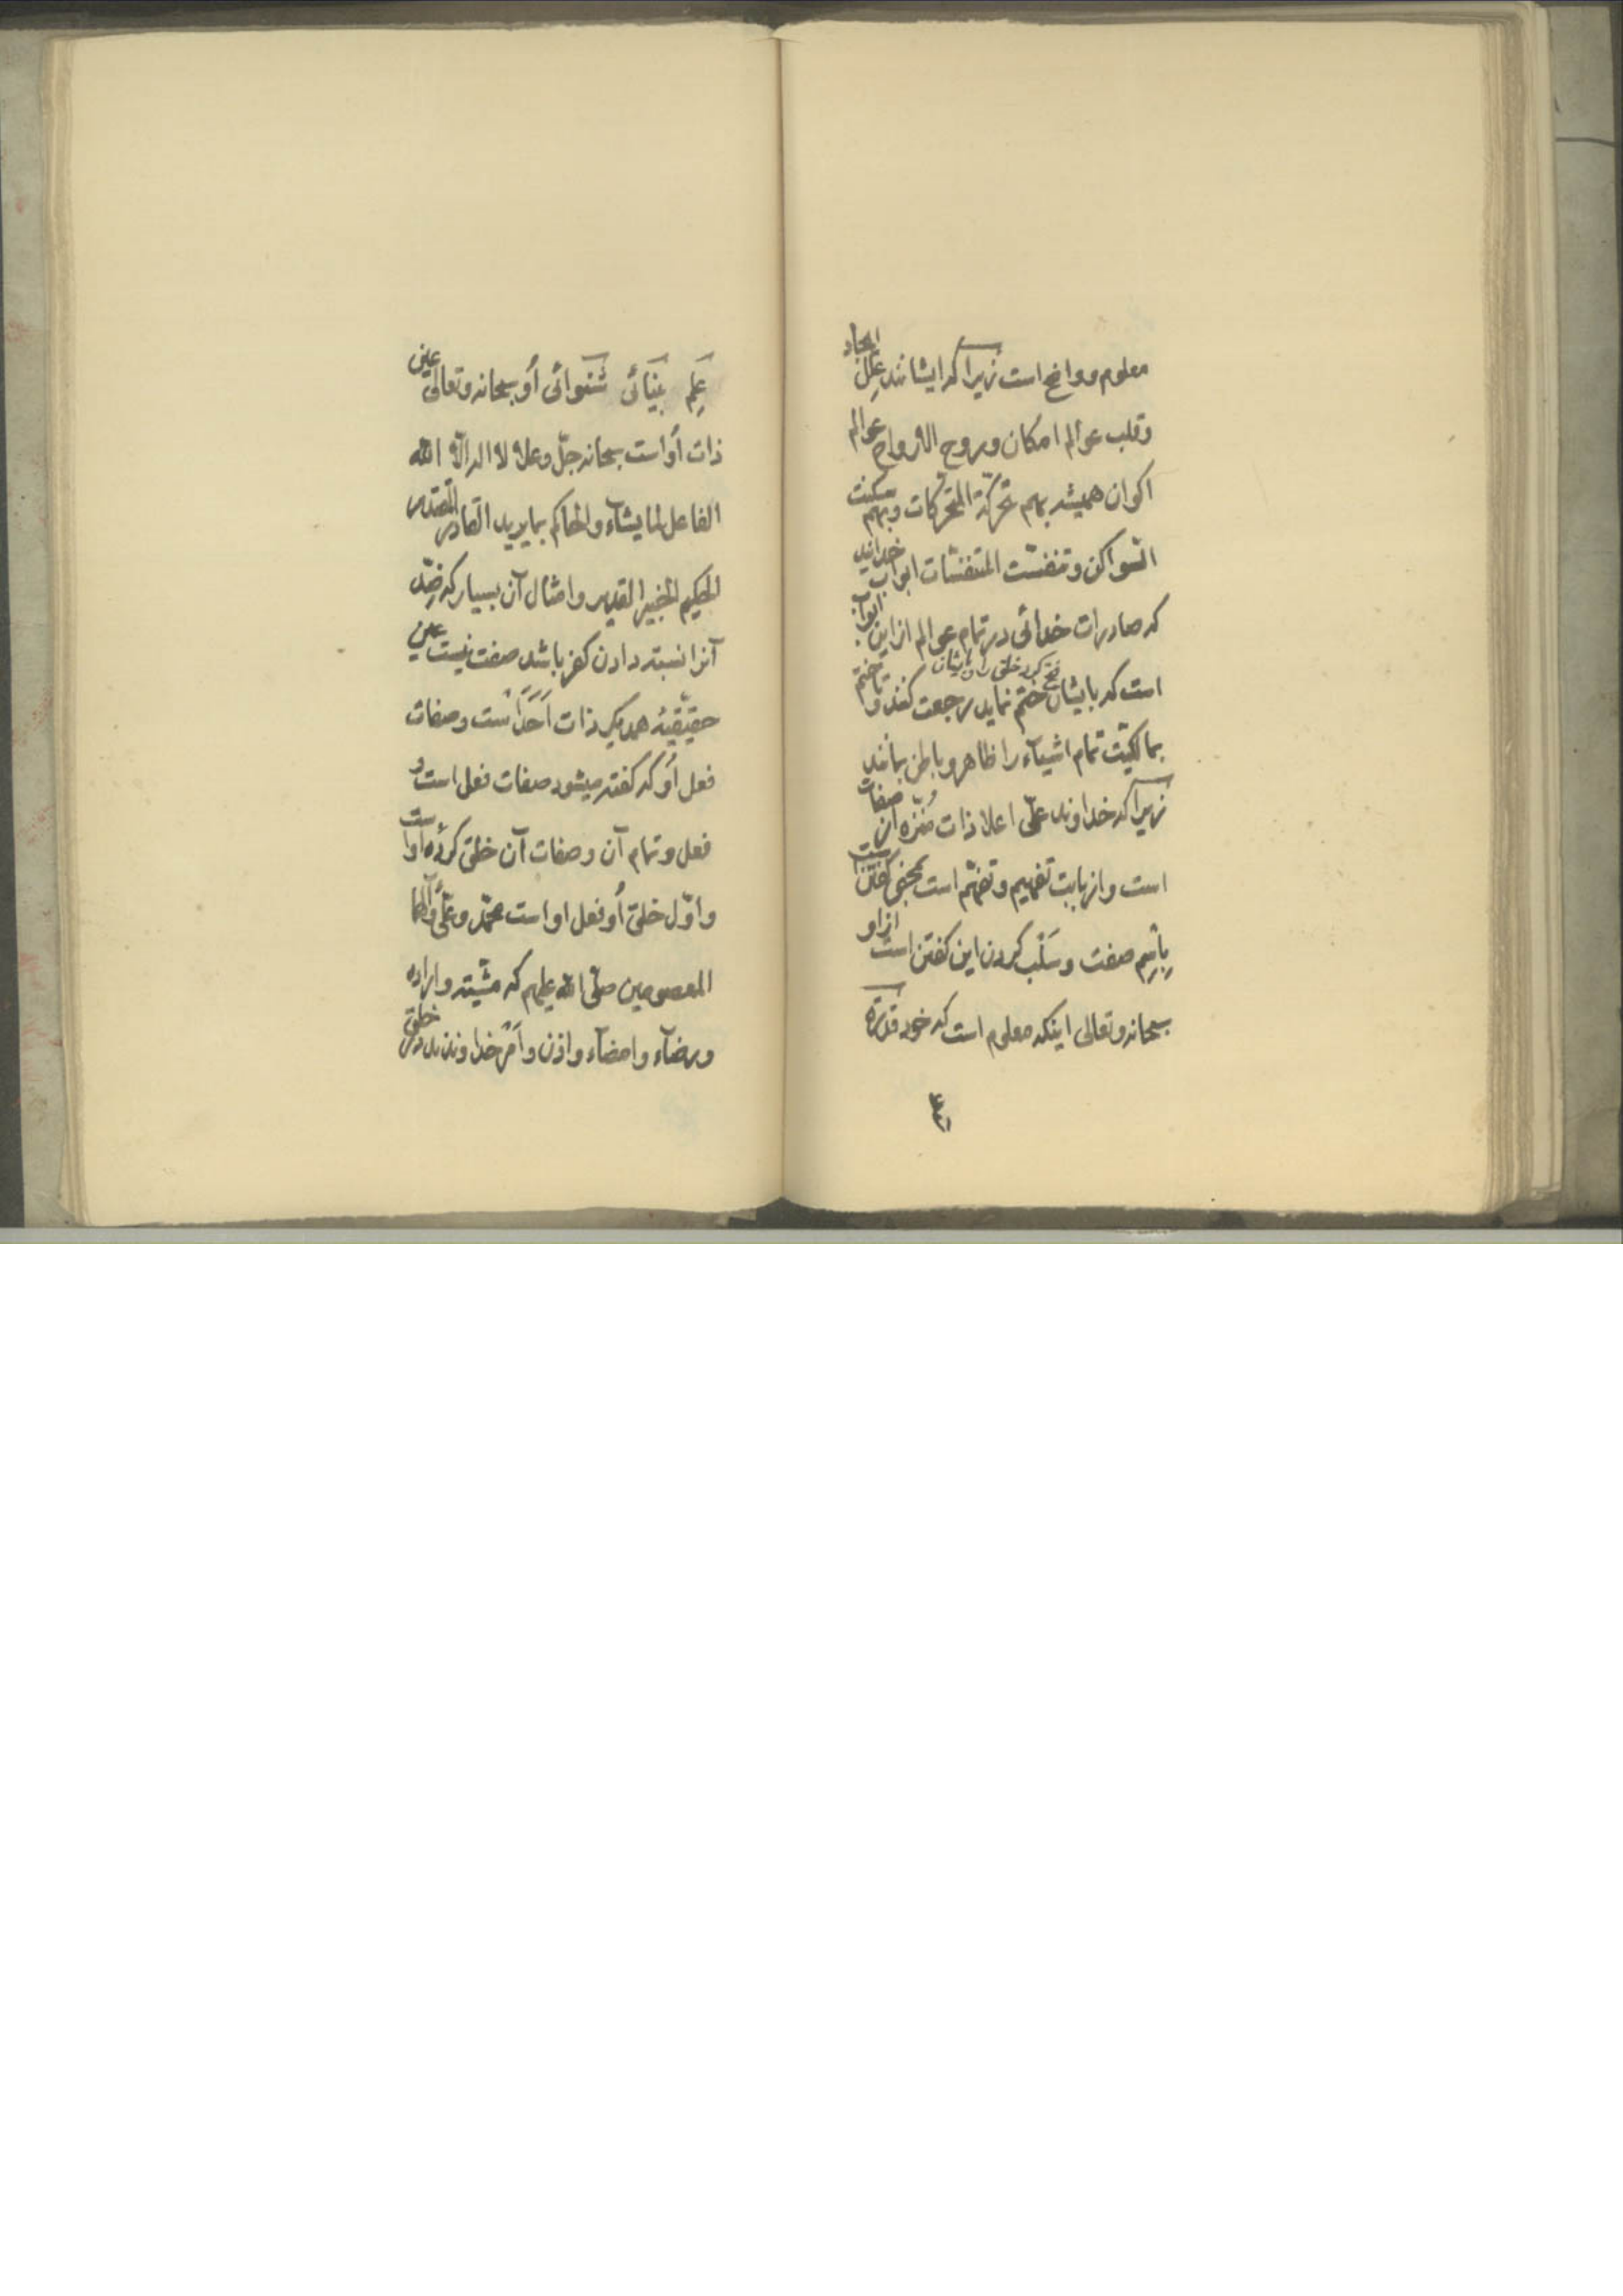 معلوم و واضح است زیرا که ایشانند علل ایجاد
و قلب عوالم امکان و روح الارواح عوالم
اکوان همیشه بهم تحرکة المتحرکات و بهم سکنت
السّواکن و تنفسّت المتنفسّات ابواب خدائید
که صادرات خدائی در تمام عوالم از این ابواب
است که بایشان فتح کرد خلق را و بایشان ختم نماید رجعت کنند و تا ختم
بمالکیّت تمام اشیآء را ظاهر و باطن بمانند
زیرا که خداوند علیّ اعلا ذات مُنَزّه از صفات
است و از بابت تفهیم و تفهّم است محض گفتن است
بِاسِم صفت و سَلْب کردن این گفتن است از او
سبحانه و تعالی اینکه معلوم است که خود قدرة
عِلم بینائی شنوائی أو سبحانه و تعالی عین
ذات أو است سبحانه جلّ و علا لا اله الّا الله
الفاعل لما یشآء و الحاکم بما یرید القادر المقتدر
الحکیم الخبیر القدیر و امثال آن بسیار که ضِدّ
آنرا نسبته دادن کفر باشد صفت نیست عین
حقیقیّه همدیگر ذات اَحَدَ است و صفات
فعل أو که گفته میشود صفات فعل است و
فعل و تمام آن و صفات آن خلق کردُه أو است
و اوّل خلق أو فعل او است محمّد و علیّ و آلهما
المعصومین صلّی الله علیهم که مشیّته و اراده
و رضآء و امضآء و اذن و اَمْر خداوندند در خلق